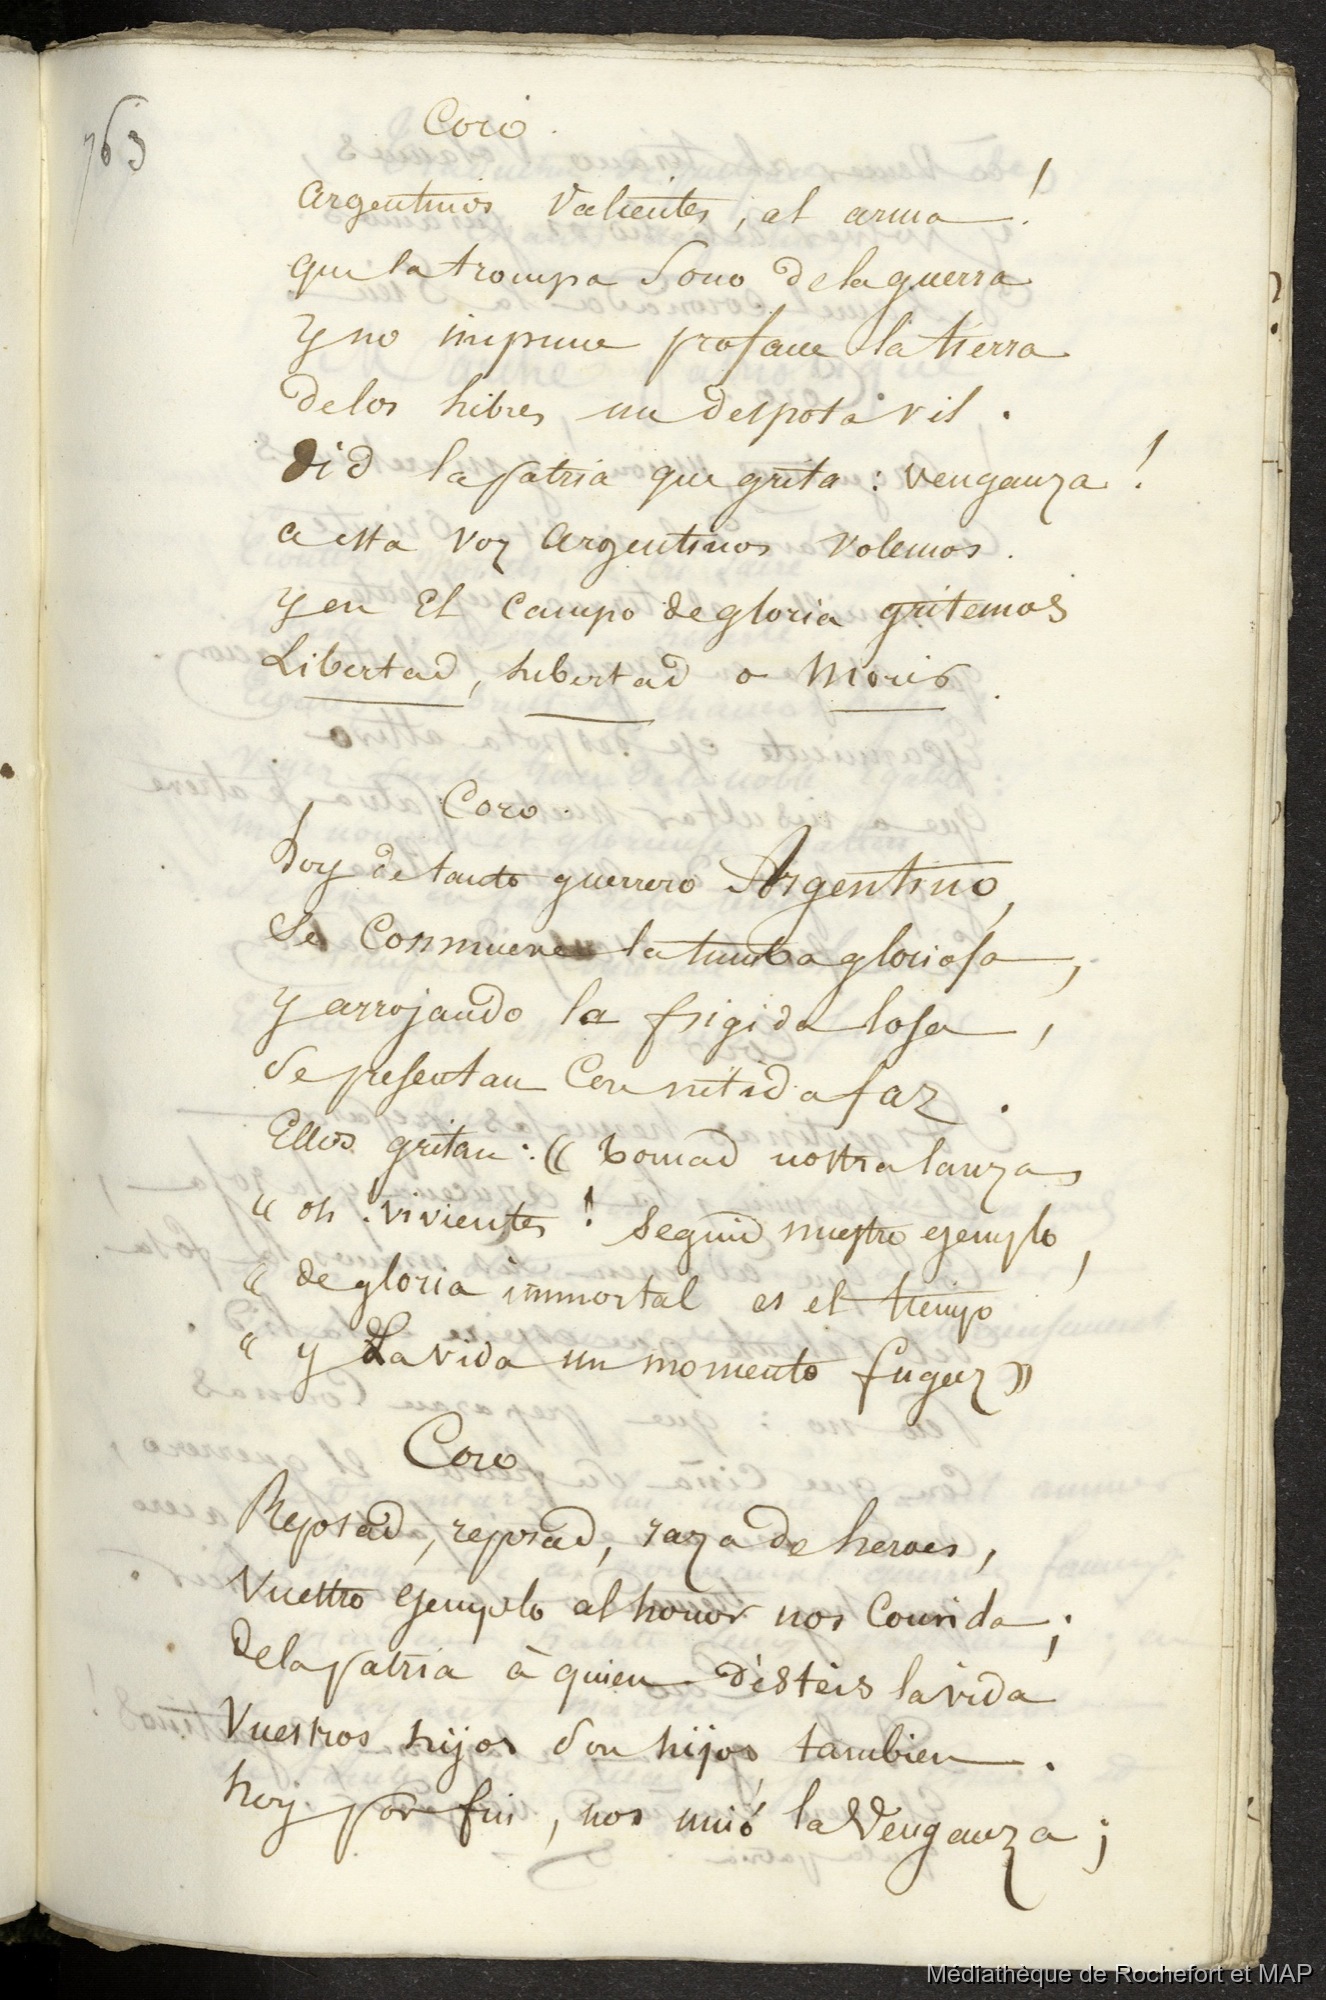 763
Coro.
Argentinos valientes, al arma!
que la trompa sono de la guerra
y no impune profane la tierra
de los libres un despota vil.
oid la patria que grita: venganza!
a esta voz argentinos volemos.
y en El campo de gloria gritemos
Libertad, libertad o Morir.
Coro.
hoy de tanto guerrero Argentino,
Se Conmueve la tumba gloriosa,
y arrojando la frigida losa,
se presentan Con nitida faz.
Ellos gritan: « tomad nostra lanzas
« oh vivientes! seguid nuestro ejemplo,
« de gloria immortal es el tiempo
« y La vida un momento fugaz »
Coro
Reposad, reposad, raza de heroes,
Vuestro ejemplo al honor nos Convida;
de la patria à quien disteis la vida
Vuestros hijos son hijos tambien.
hoy por fin, nos unió la Venganza;
Médiathèque de Rochefort et MAP